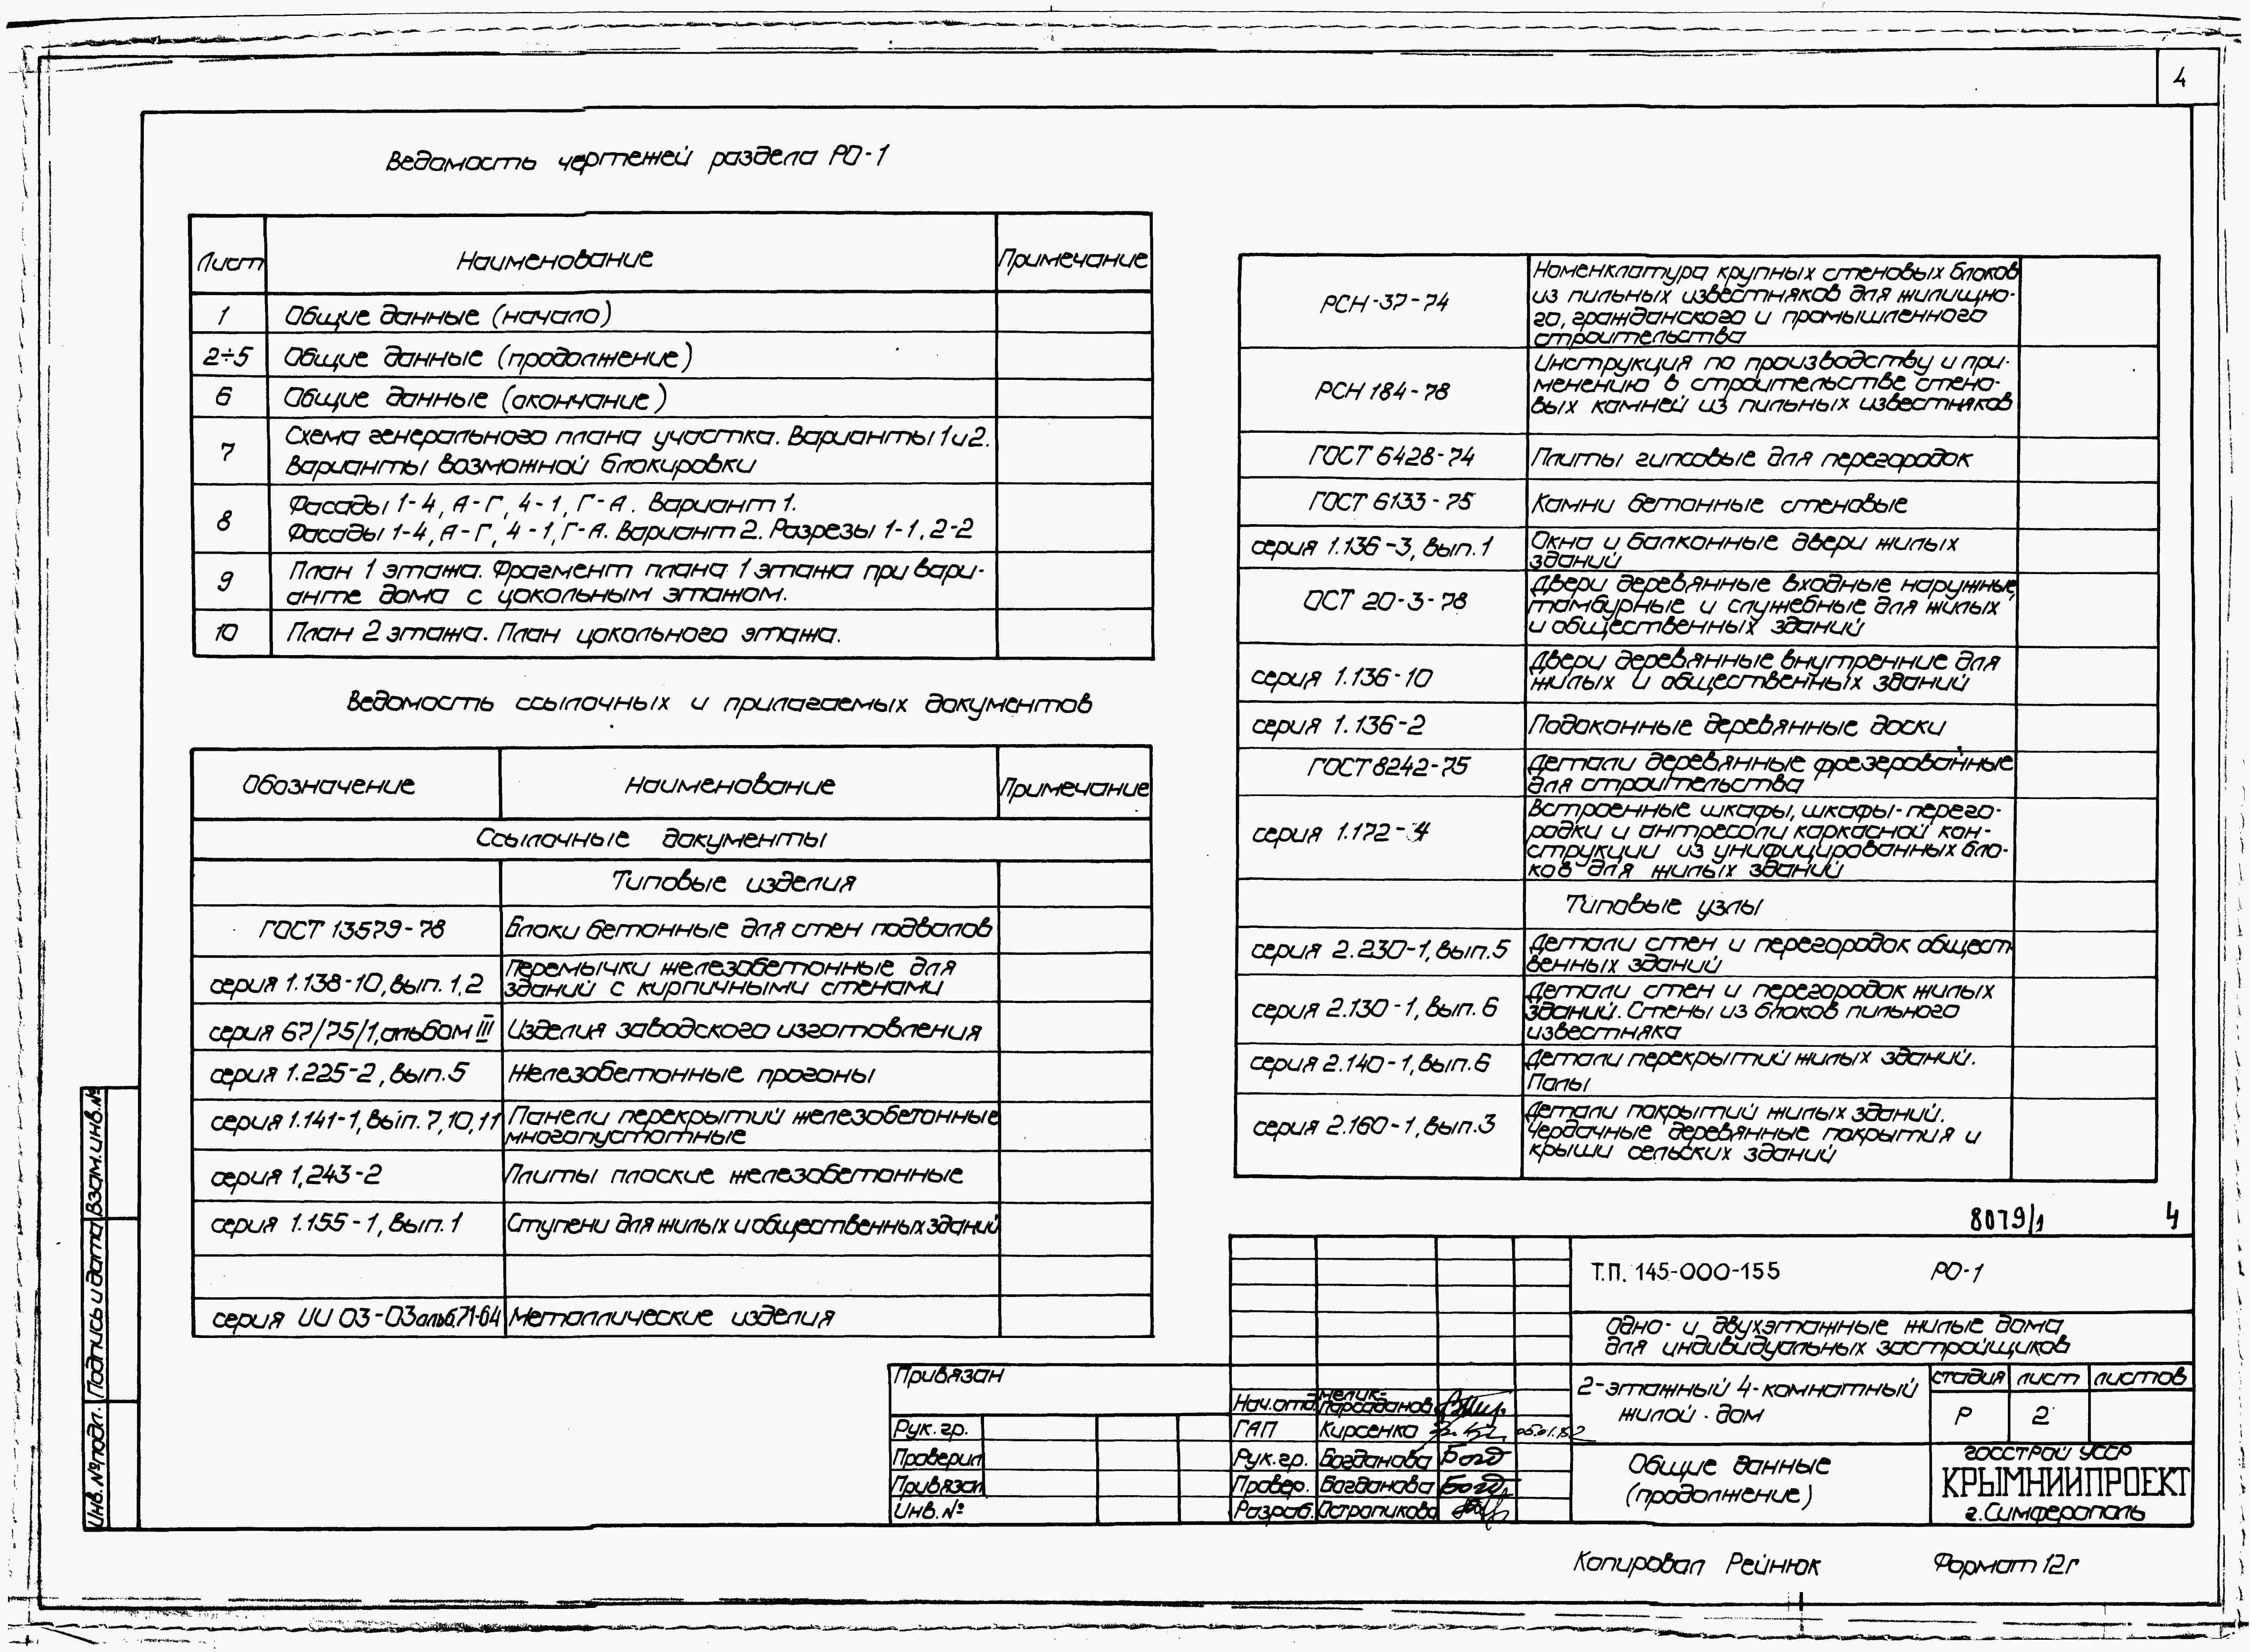 4
Ведомость чертежей раздела РО-1
Лист Наименование Примечание
1 Общие данные (начало)
2÷5 Общие данные (продолжение)
6 Общие данные (окончание)
7 Схема генерального плана участка. Варианты 1 и 2.
Варианты возможной блокировки
8 Фасады 1-4, А-Г, 4-1, Г-А. Вариант 1.
Фасады 1-4, А-Г, 4-1, Г-А. Вариант 2. Разрезы 1-1, 2-2
9 План 1 этажа. Фрагмент плана 1 этажа при вари-
анте дома с цокольным этажом.
10 План 2 этажа. План цокольного этажа.
Ведомость ссылочных и прилагаемых документов
Обозначение Наименование Примечание
Ссылочные документы
Типовые изделия
ГОСТ 13579-78 Блоки бетонные для стен подвалов
серия 1.138-10, вып. 1,2 Перемычки железобетонные для
зданий с кирпичными стенами
серия 67/75/1, альбом III Изделия заводского изготовления
серия 1.225-2, вып. 5 Железобетонные прогоны
серия 1.141-1, вып. 7, 10, 11 Панели перекрытий железобетонные
многопустотные
серия 1,243-2 Плиты плоские железобетонные
серия 1.155-1, вып. 1 Ступени для жилых и общественных зданий
серия ИИ 03-03 альб. 71-64 Металлические изделия
РСН-37-74 Номенклатура крупных стеновых блоков
из пильных известняков для жилищно-
го, гражданского и промышленного
строительства
РСН 184-78 Инструкция по производству и при-
менению в строительстве стено-
вых камней из пильных известняков
ГОСТ 6428-74 Плиты гипсовые для перегородок
ГОСТ 6133-75 Камни бетонные стеновые
серия 1.136-3, вып. 1 Окна и балконные двери жилых
зданий
ОСТ 20-3-78 Двери деревянные входные наружные,
тамбурные и служебные для жилых
и общественных зданий
серия 1.136-10 Двери деревянные внутренние для
жилых и общественных зданий
серия 1.136-2 Подоконные деревянные доски
ГОСТ 8242-75 Детали деревянные фрезерованные
для строительства
серия 1.172-4 Встроенные шкафы, шкафы-перего-
родки и антресоли каркасной кон-
струкции из унифицированных бло-
ков для жилых зданий
Типовые узлы
серия 2.230-1, вып. 5 Детали стен и перегородок общест
венных зданий
серия 2.130-1, вып. 6 Детали стен и перегородок жилых
зданий. Стены из блоков пильного
известняка
серия 2.140-1, вып. 6 Детали перекрытий жилых зданий.
Полы
серия 2.160-1, вып. 3 Детали покрытий жилых зданий.
Чердачные деревянные покрытия и
крыши сельских зданий
8079/1 4
Т.П. 145-000-155 РО-1
Одно- и двухэтажные жилые дома
для индивидуальных застройщиков
2-этажный 4-комнатный
жилой дом
стадия лист листов
Р 2
Общие данные
(продолжение)
ГОССТРОЙ УССР
КРЫМНИИПРОЕКТ
г. Симферополь
Привязан
Рук. гр.
Проверил
Привязал
Инв. №
Нач. отд. Мелик-
Парсаданов
ГАП Кирсенко
Рук. гр. Богданова Богд
Провер. Богданова Богд
Разраб. Остропикова
Инв. № подл. Подпись и дата Взам. инв. №
Копировал Рейнюк Формат 12г